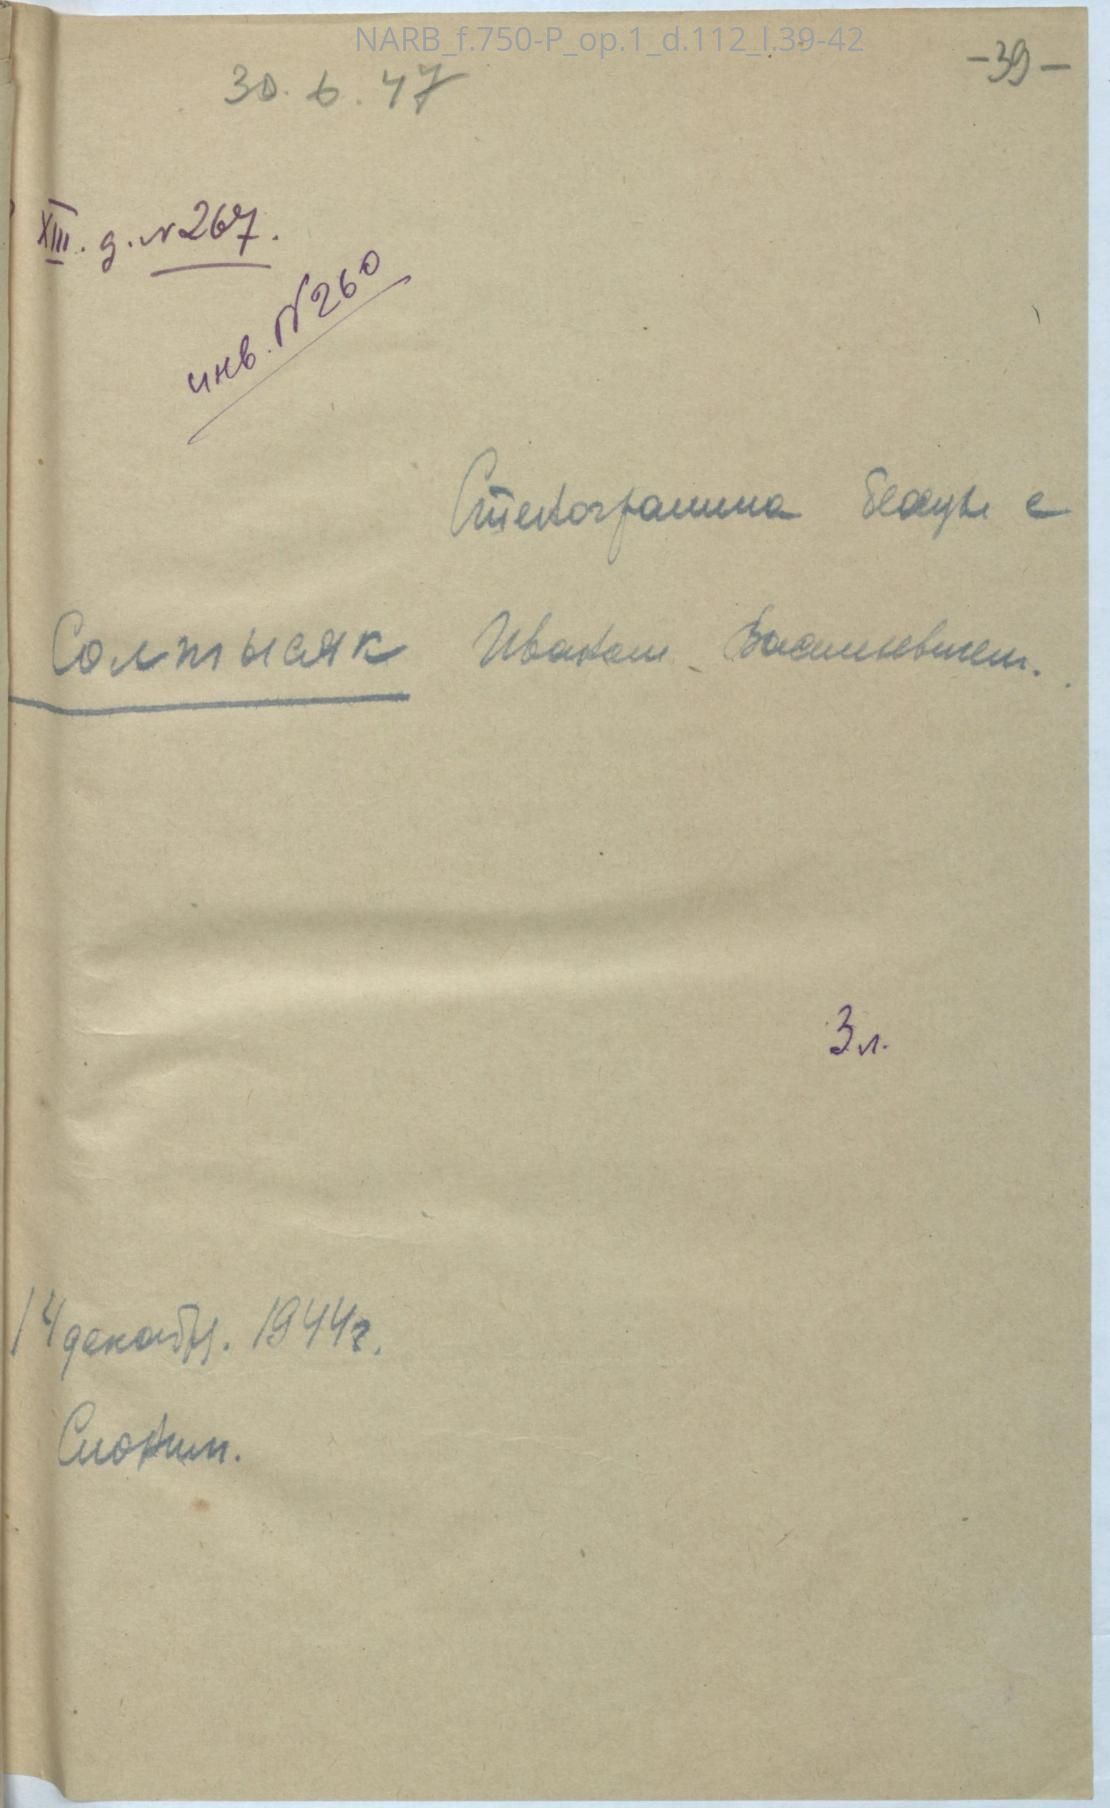 NARB_f.750-P_op.1_d.112_l.39-42
-39-
30.6.47
XIII. д. №267.
инв. №260
Стенограмма беседы с
Солтысяк Иваном Васильевичем.
3 л.
14 декабр. 1944 г.
Слоним.